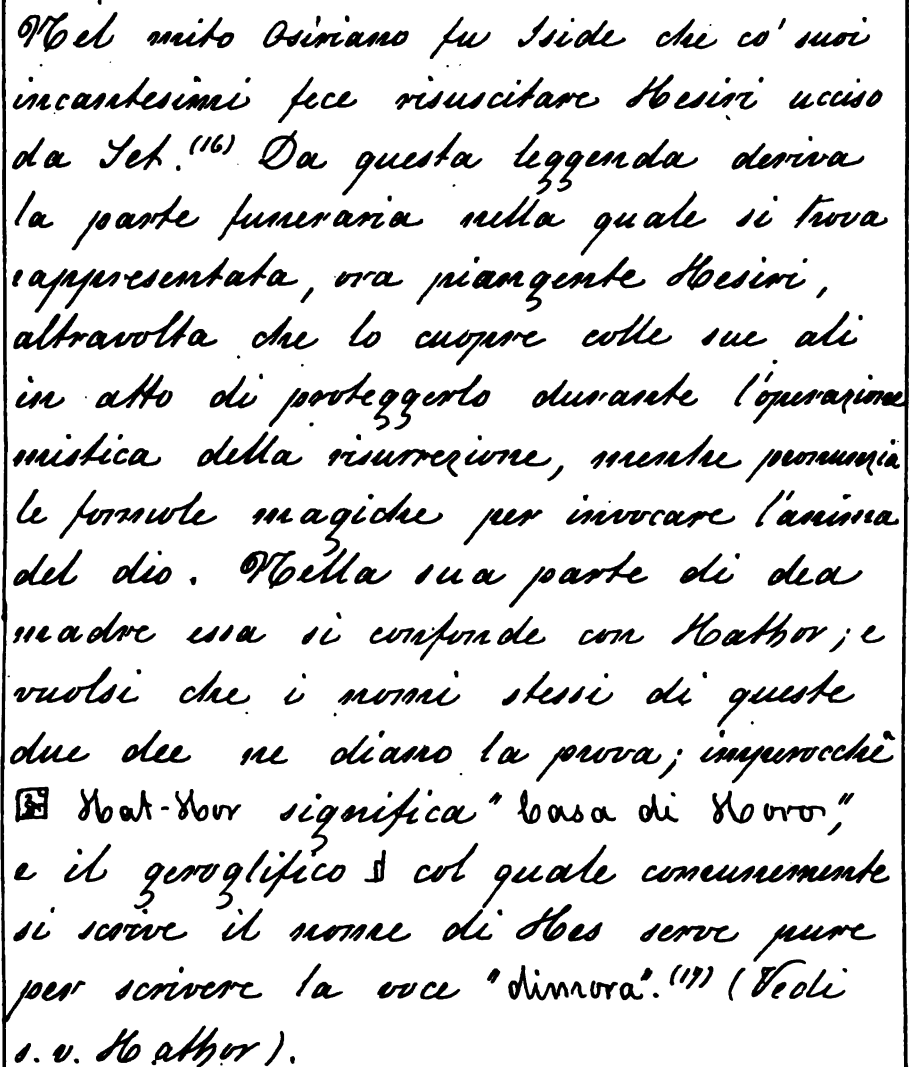 Nel mito Osiriano fu Iside che co' suoi
incantesimi fece risuscitare Hesiri ucciso
da Set.(16) Da questa leggenda deriva
la parte funeraria nella quale si trova
rappresentata, ora piangente Hesiri,
altravolta che lo cuopre colle sue ali
in atto di proteggerlo durante l'operazione
mistica della risurrezione, mentre pronunzia
le formole magiche per invocare l'anima
del dio. Nella sua parte di dea
madre essa si confonde con Hathor; e
vuolsi che i nomi stessi di queste
due dee ne diano la prova; imperocchè
𓉡 Hat-Hor significa "Casa di Horo",
e il geroglifico 𓊨 col quale comunemente
si scrive il nome di Hes serve pure
per scrivere la voce "dimora".(17) (Vedi
s. v. Hathor).